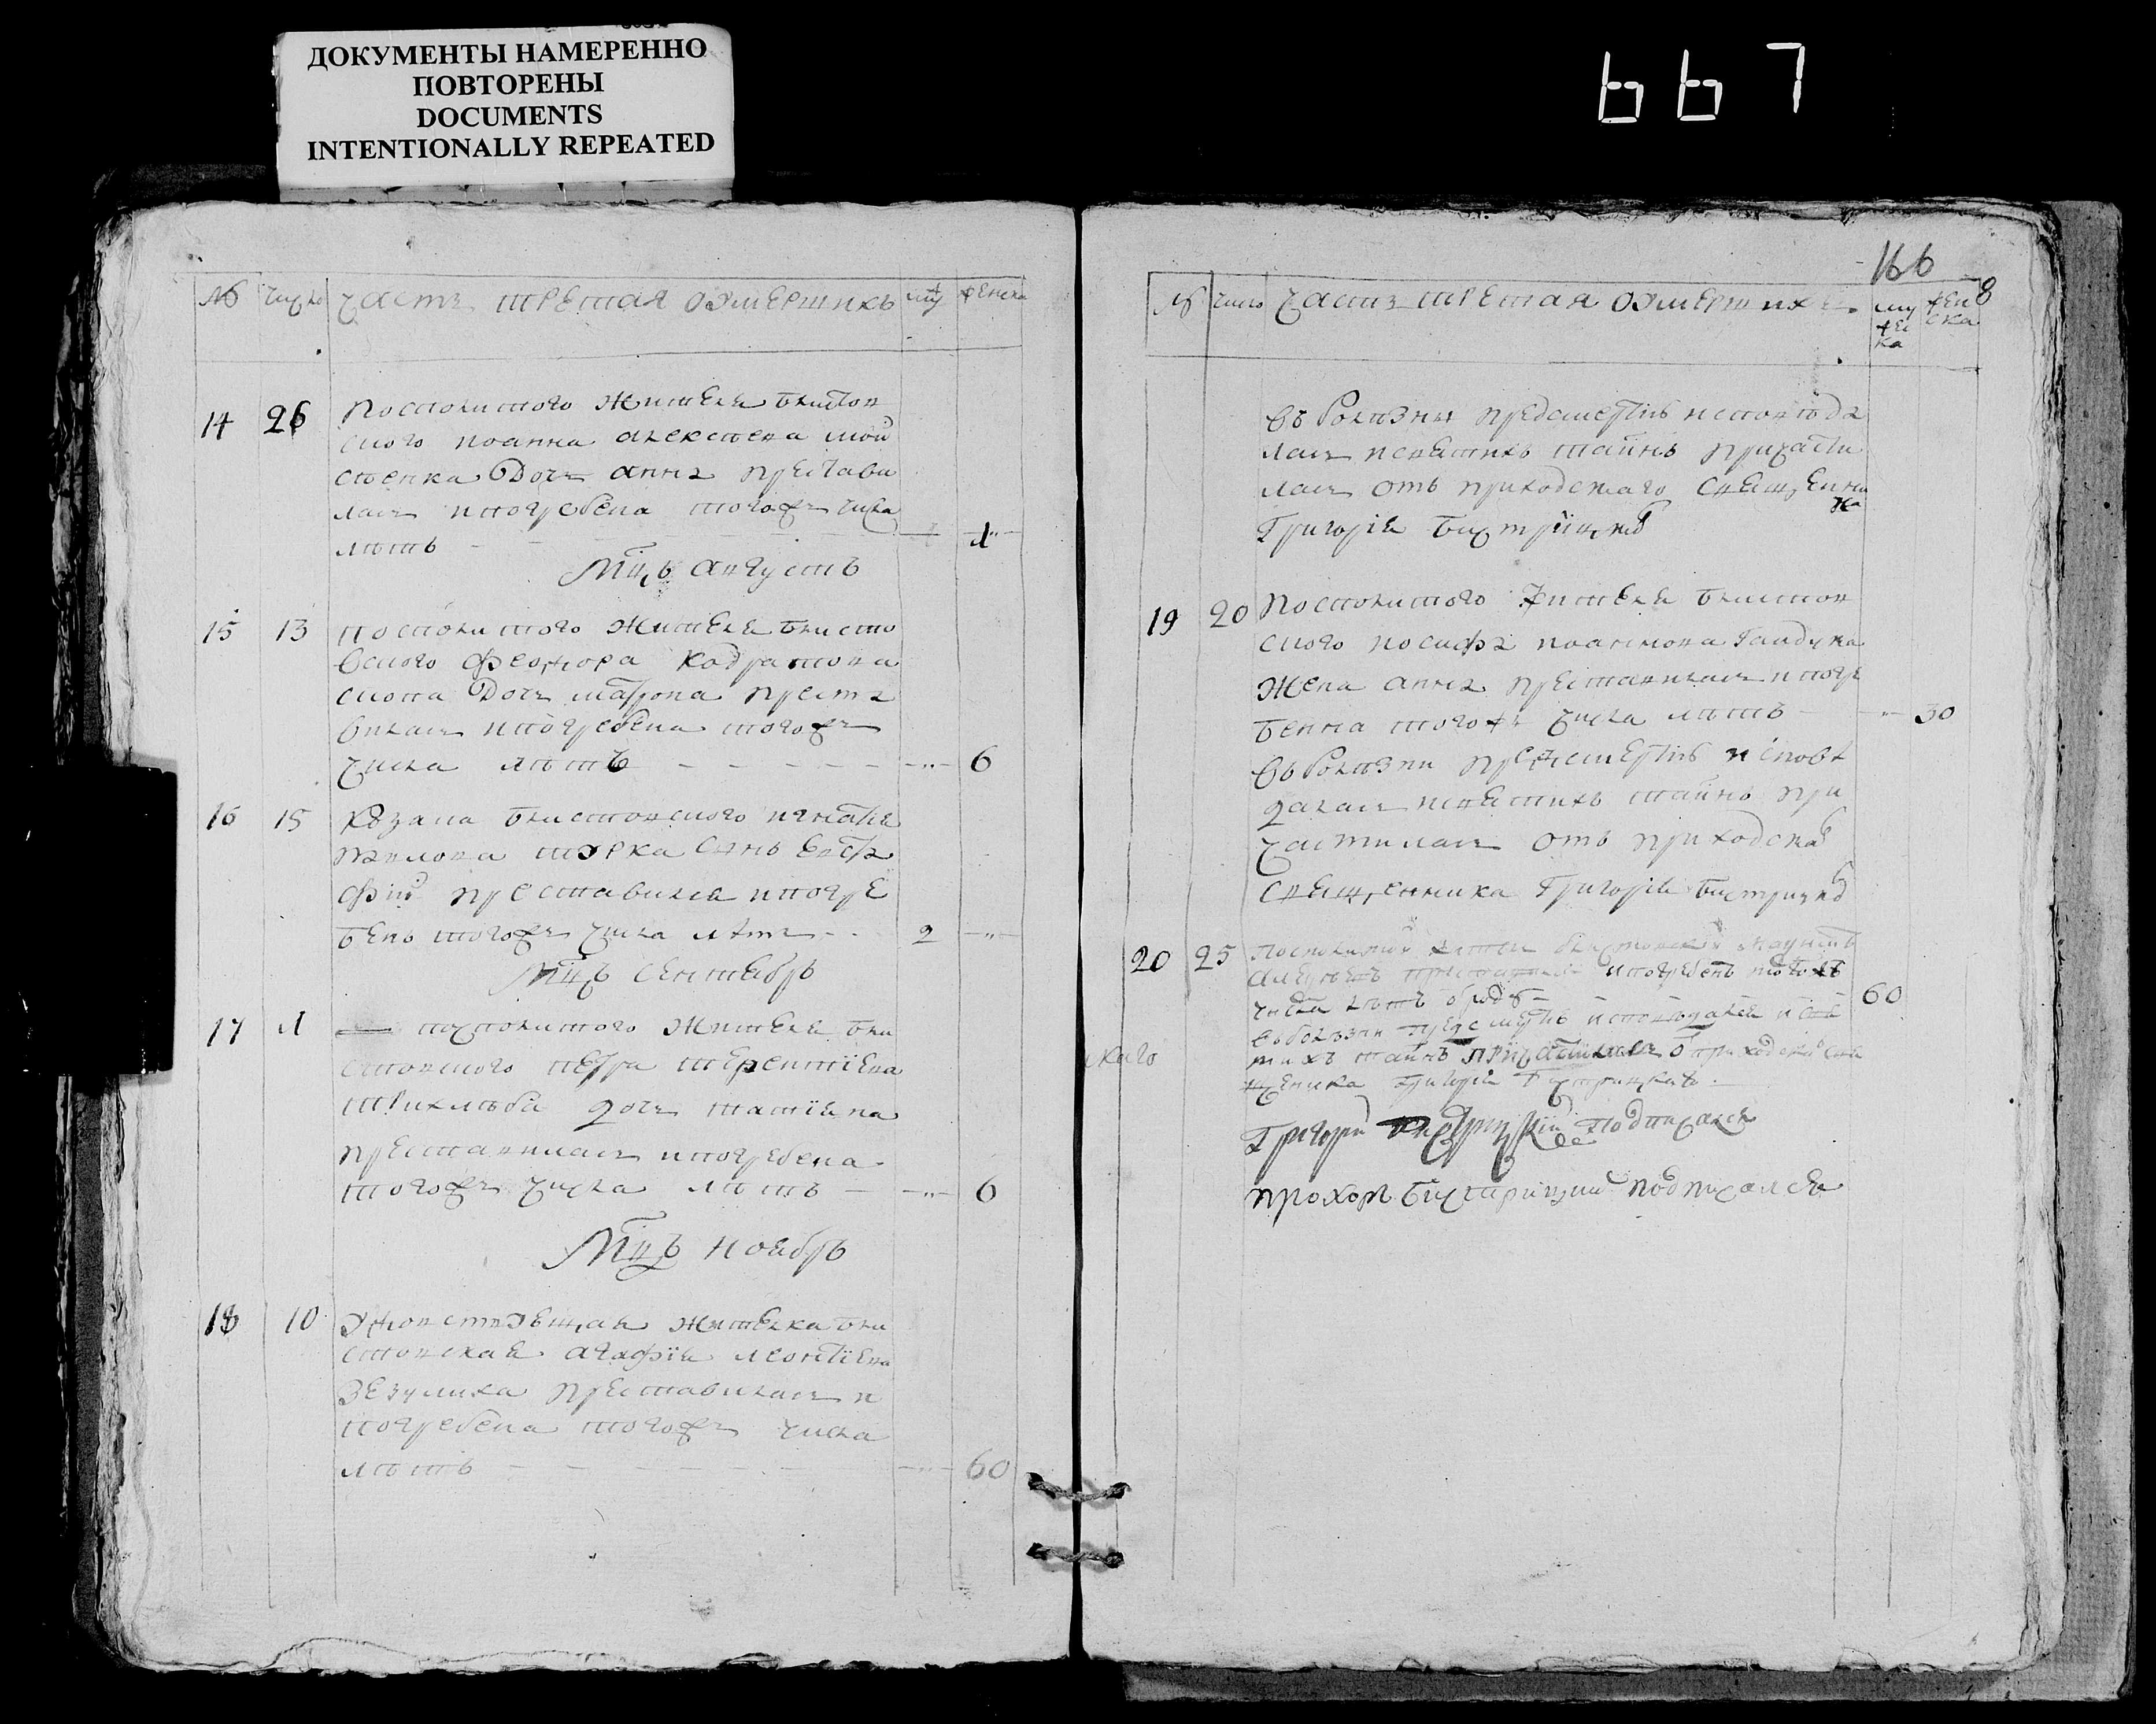 ДОКУМЕНТЫ НАМЕРЕННО
ПОВТОРЕНЫ
DOCUMENTS
INTENTIONALLY REPEATED
667
№ число часть третая оумерших муж женска
14 26 Посполитого жителя Блистов
ского Иоанна Алексеева Мой
сеенка дочь Анна престави
лась и погребена того ж числа
лѣтъ 1
Мцъ Августъ
15 13 посполитого жителя Блисто
вского Феодора Кодратова
дочь Матрона преста
вилась и погребена того ж
числа лѣтъ 6
16 15 Козака Блистовского Игнатия
сынъ Евста
фий преставился и погре
бенъ того ж числа лѣт 2
Мцъ Сентябрь
17 1 посполитого жителя Бли
стовского Петра Терентиева
дочь Татиана
преставилась и погребена
того ж числа лѣтъ 6
Мцъ Ноябрь
18 10 жителка Бли
стовская Агафия Леонтиева
Зезулиха преставилась и
погребена того ж числа
лѣтъ 60
166
8
№ число часть третая оумерших муже ска жен ска
въ болѣзни предсмертнѣ исповѣда
лась и святих таинъ причасти
лась отъ приходскаго священни
ка
Григория Бистрицко
19 20 Посполитого жителя Блистов
ского Иосифа Гайдука
жена Анна преставилась и погре
бенна того ж числа лѣтъ 30
въ болѣзни предсмертнѣ исповѣ
далась и святихъ таинъ при
частилась отъ приходска
священника Григория Бистрицко
20 25 Посполитий житель Блистовский
преставился и погребенъ того жъ
числа лѣтъ 60
въ болѣзни предсмертнѣ исповѣдался и свя
тихъ таинъ причастился о приходско свя
щеника Григория Бистрицкаго
Григорий Бистрицкий подписался
Прохоръ Бистрицкий подписался